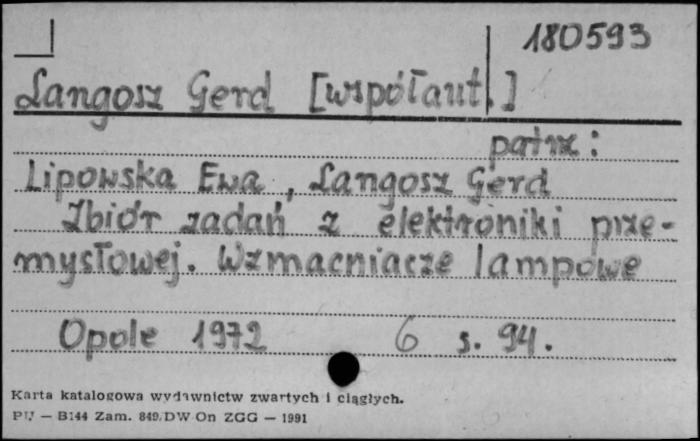 180593
Langosz Gerd [współaut.]
patrz:
Lipowska Ewa, Langosz Gerd
Zbiór zadań z elektroniki prze-
mysłowej. Wzmacniacze lampowe
Opole 1972 6 s. 94.
Karta katalogowa wydawnictw zwartych i ciągłych.
PU — B144 Zam. 849/DW On ZGG — 1991